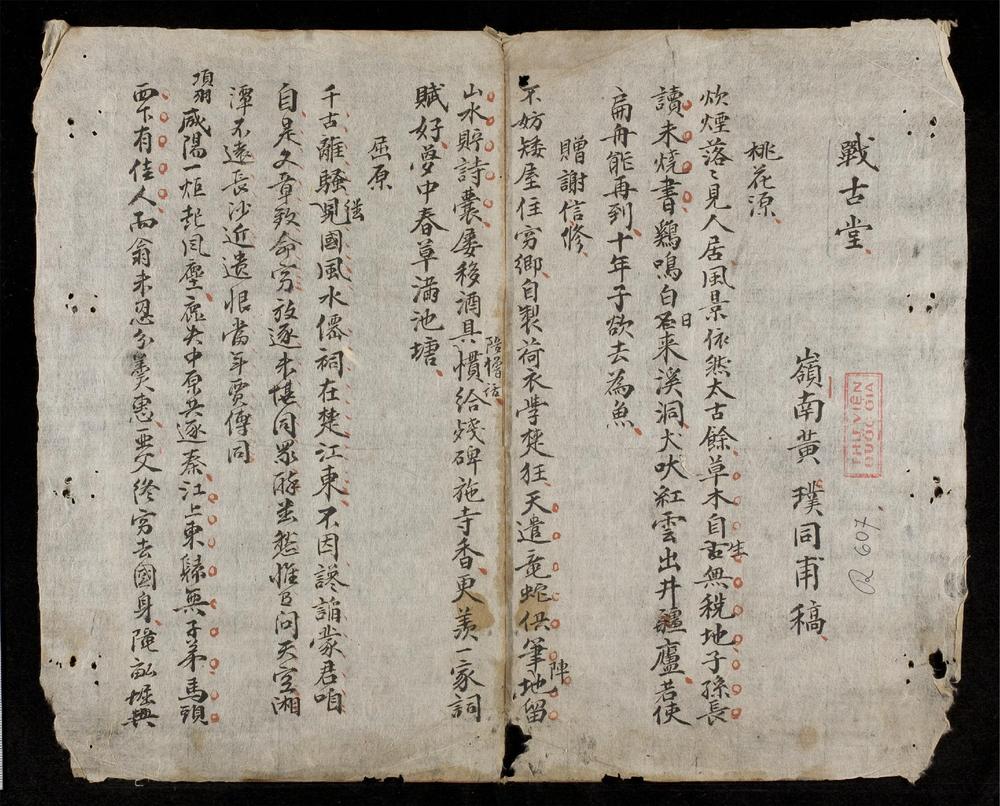 戰古堂
嶺南黃璞同甫稿
THƯ VIỆN
QUỐC GIA
R 607
桃花源
炊煙落〻見人居風景依然太古餘草木自古生無稅地子孫長
讀未燒書鷄鳴白日來溪洞犬吠紅雲出井疆廬若使
扁舟能再到十年子欲去為魚
贈謝信修
不妨矮屋住窮鄉自製荷衣學楚狂天遣龍蛇供筆陣地留
山水貯詩囊屡移酒具慣給殘碑施寺香更羨一家詞
陪僧話
賦好夢中春草滿池塘
屈原
千古離騷見繼國風水僊祠在楚江東不因讒諂蒙君咱
自是文章致命窮放逐未堪同眾醉茫然惟有問天空湘
潭不遠長沙近遺恨當年賈傅同
項羽
咸陽一炬起風塵鹿失中原共逐秦江上東歸無子弟馬頭
西下有佳人而翁未忍分羹惠亞父終窮去國身